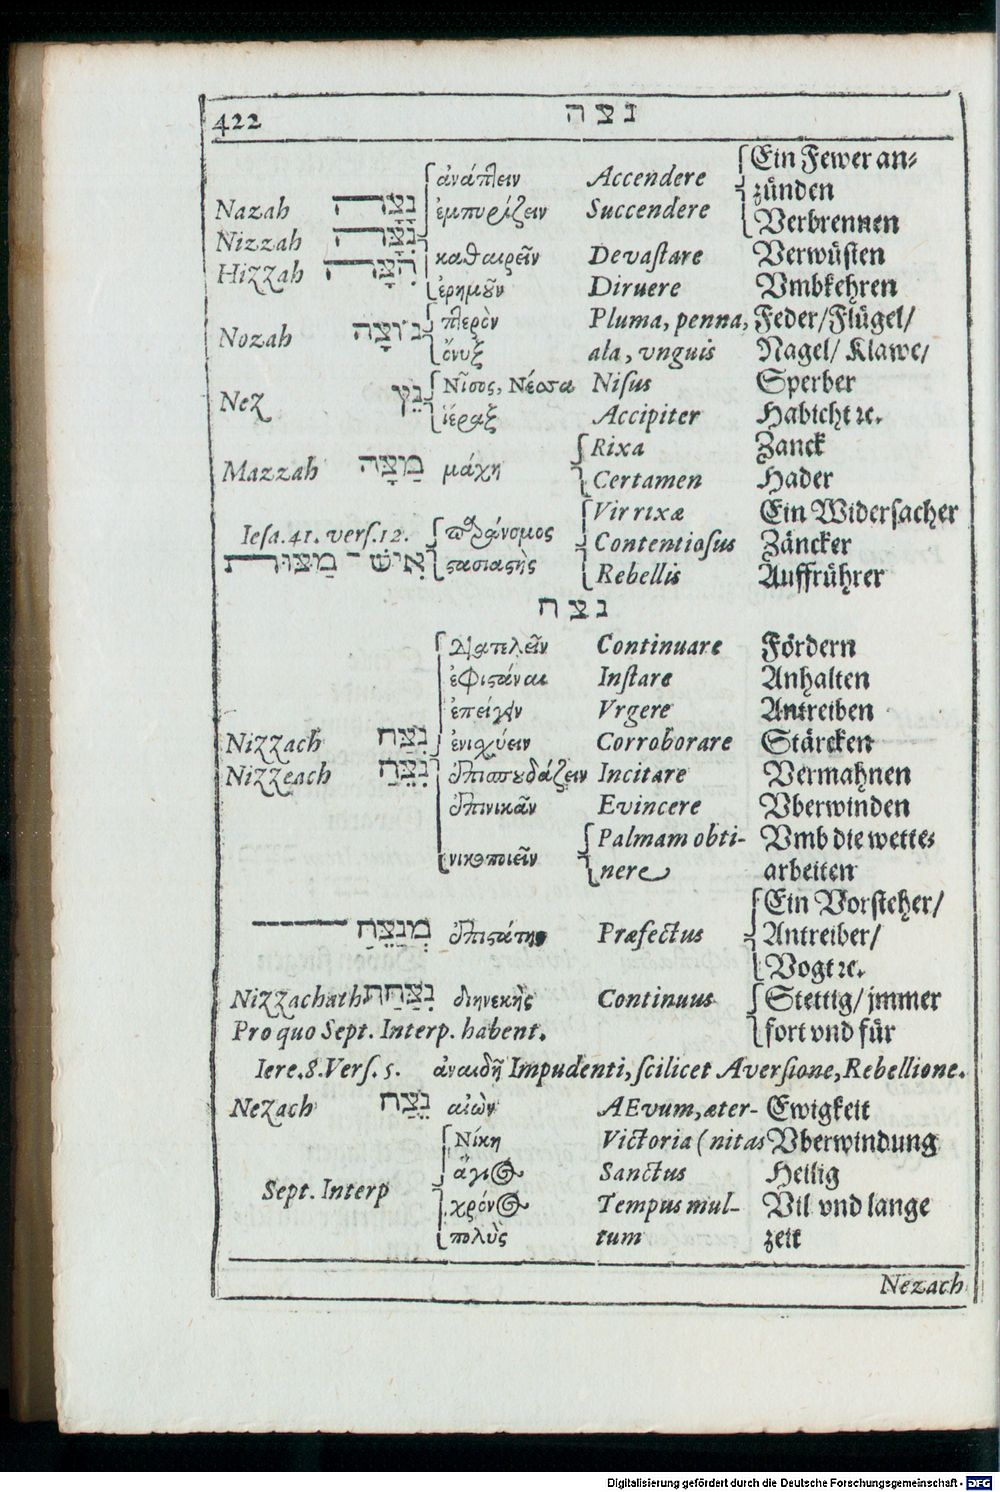 422 נצה
ἀνάπτειν Accendere Ein Fewer an⸗
zünden
Nazah נָצָה ἐμπυρίζειν Succendere Verbrennen
Nizzah נִצָּה καθαιρεῖν Devastare Verwüsten
Hizzah הִצָּה ἐρημοῦν Diruere Vmbkehren
Nozah נוֹצָה πτερὸν Pluma, penna, Feder/Flügel/
ὄνυξ ala, vnguis Nagel/ Klawe/
Nez נֵץ Νῖσος, Νέοσα Nisus Sperber
ἱέραξ Accipiter Habicht ꝛc.
Mazzah מַצָּה μάχη Rixa Zanck
Certamen Hader
Iesa. 41. vers. 12. παράνομος Vir rixæ Ein Widersacher
אִישׁ־מַצּוּת στασιαστὴς Contentiosus Zäncker
Rebellis Auffrührer
נצח
διατελεῖν Continuare Fördern
ἐφιστάναι Instare Anhalten
ἐπείγειν Vrgere Antreiben
Nizzach נִצַּח ἐνισχύειν Corroborare Stärcken
Nizzeach נִצֵּחַ ἐπισπουδάζειν Incitare Vermahnen
ἐπινικᾶν Evincere Vberwinden
νικοποιεῖν Palmam obti- Vmb die wette⸗
nere arbeiten
Ein Vorsteher/
מְנַצֵּחַ ἐπιστάτης Præfectus Antreiber/
Vogt ꝛc.
Nizzachath נִצַּחַת διηνεκὴς Continuus Stettig/ jmmer
Pro quo Sept. Interp. habent. fort vnd für
Iere. 8. Vers. 5. ἀναιδῆ Impudenti, scilicet Aversione, Rebellione.
Nezach נֵצַח αἰὼν AEvum, æter- Ewigkeit
Νίκη Victoria (nitas Vberwindung
ἅγιος Sanctus Heilig
Sept. Interp χρόνος Tempus mul- Vil vnd lange
πολὺς tum zeit
Nezach
Digitalisierung gefördert durch die Deutsche Forschungsgemeinschaft - DFG